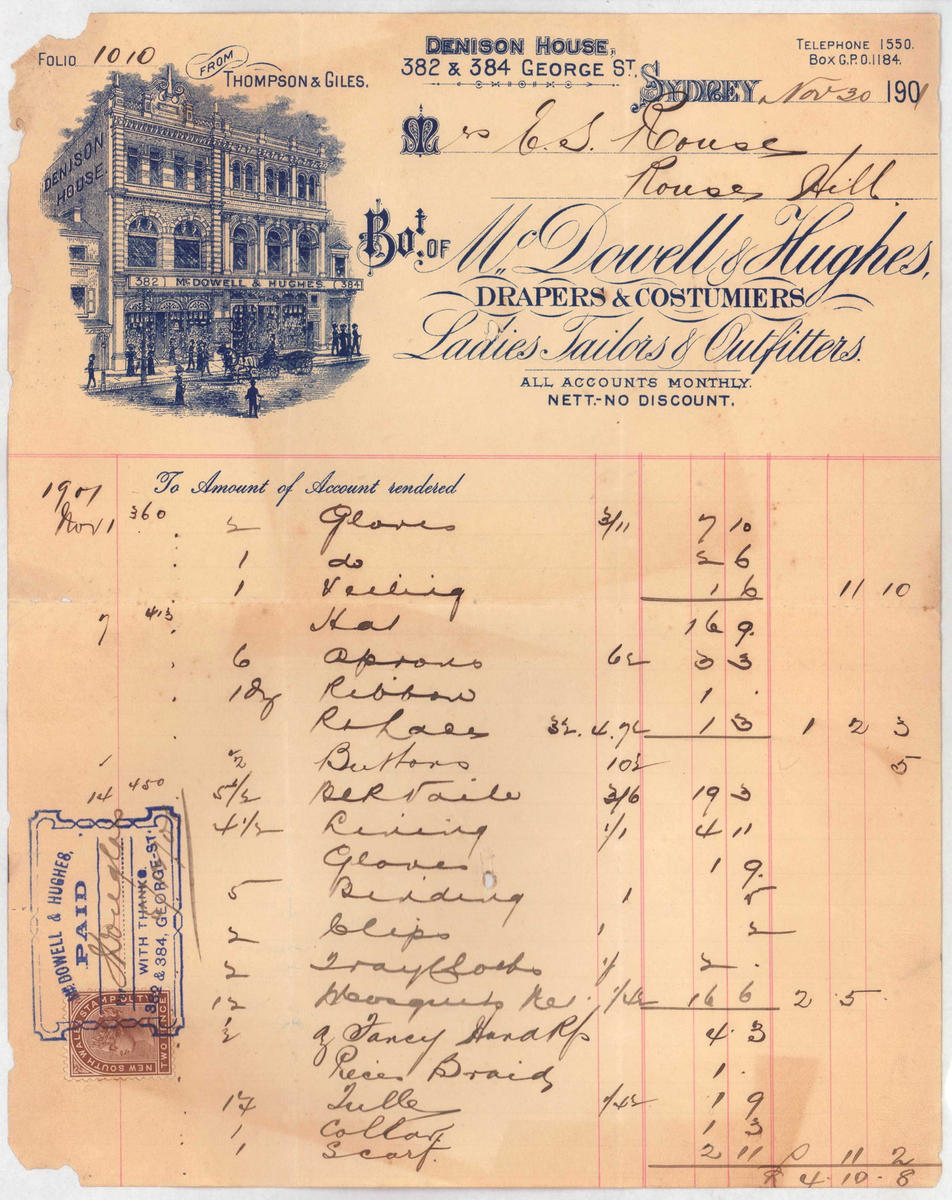 FOLIO 1010
FROM THOMPSON & GILES.
DENISON HOUSE,
382 & 384 GEORGE ST.
TELEPHONE 1550.
BOX G.P.O. 1184.
SYDNEY, Nov 30 1901
Mrs E. S. Rouse
Rouse Hill
DENISON HOUSE.
382 McDOWELL & HUGHES. 384
Bot. OF McDowell & Hughes,
DRAPERS & COSTUMIERS
Ladies Tailors & Outfitters.
ALL ACCOUNTS MONTHLY.
NETT.-NO DISCOUNT.
1901 To Amount of Account rendered
Nov 1 360 2 Gloves 3/11 7 10
1 do 2 6
1 Veiling 1 6 11 10
7 413 Hat 16 9
6 Aprons 6½ 3 3
Ribbon 1 .
1 3 1 2 3
2 Buttons 10½ 5
14 450 5½ Voile 3/6 19 3
4½ Lining 1/1 4 11
Gloves 1 9
5 Binding 1 5
2 Clips 1 2
2 Traycloths 1/ 2 .
12 Mosquito Net 1/4½ 16 6 2 5
½ Fancy Handkfs 4 3
Pieces Braid 1 .
17 Tulle 1/4½ 1 9
1 Collar 1 3
1 Scarf 2 11 11 2
£ 4 10 8
McDOWELL & HUGHES,
PAID
WITH THANKS.
382 & 384, GEORGE-ST.
NEW SOUTH WALES STAMP DUTY
TWO PENCE